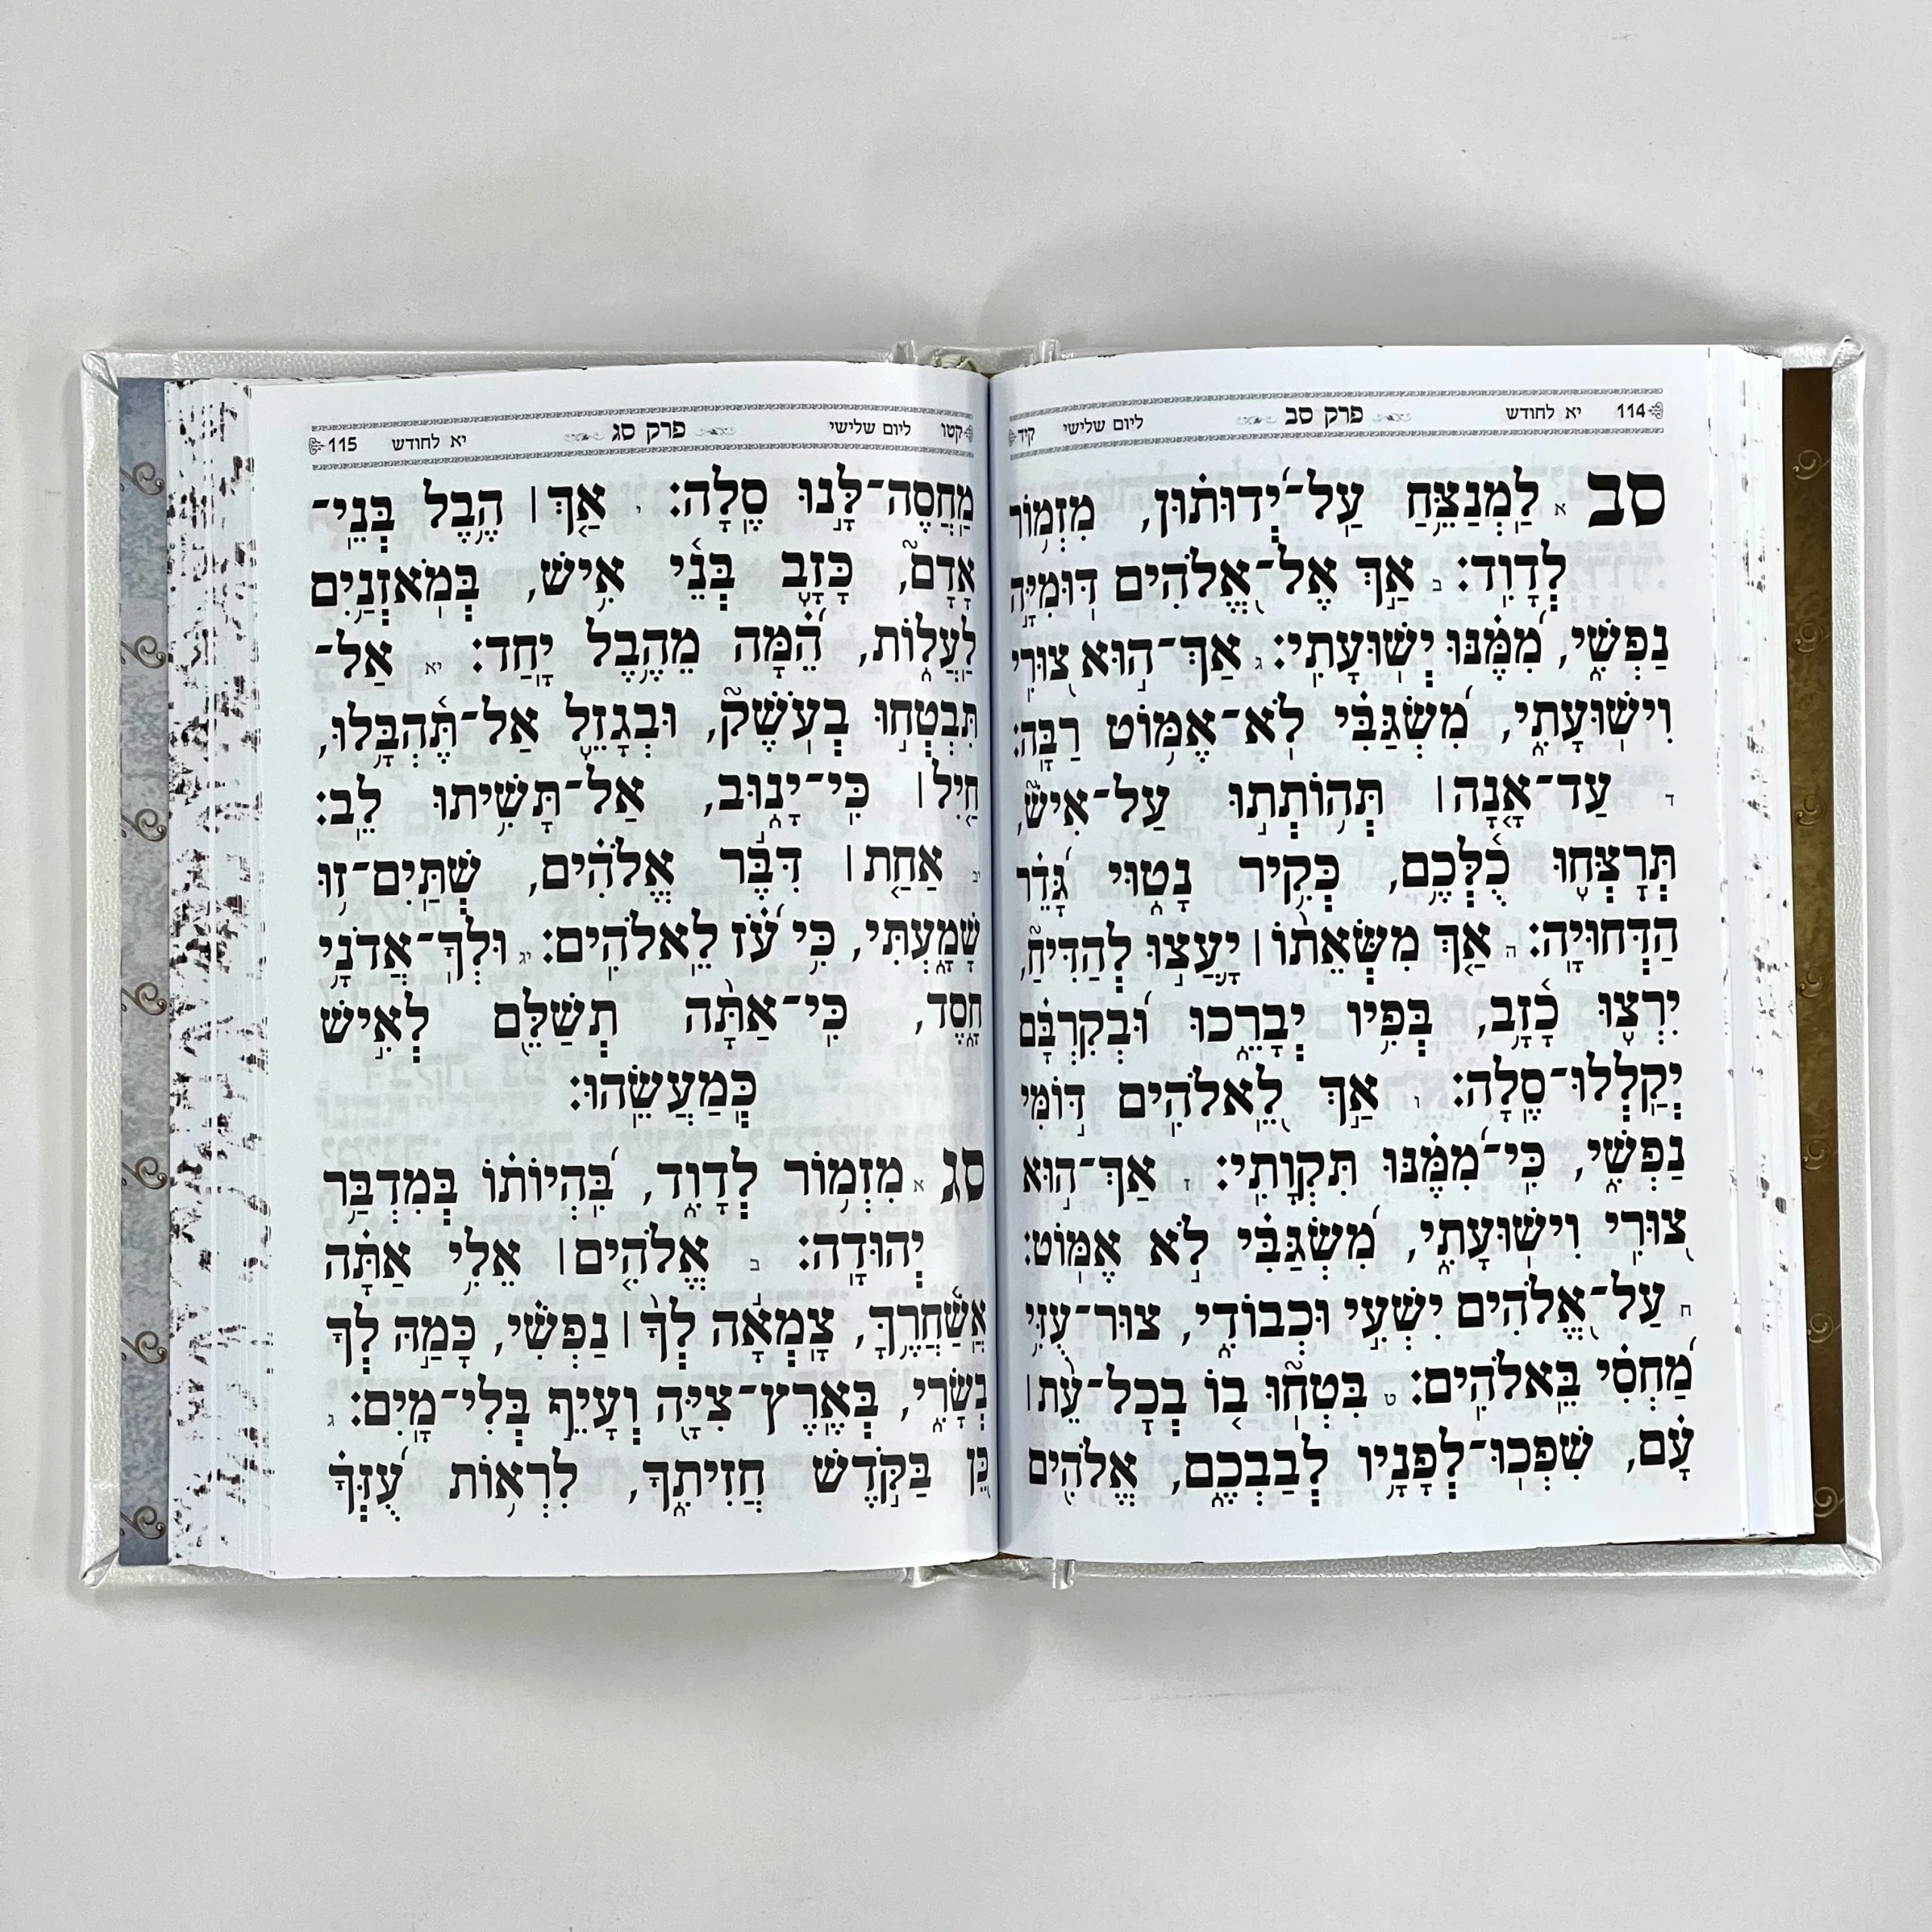 114 יא לחודש פרק סב ליום שלישי קיד
סב א לַמְנַצֵּחַ עַל־יְדוּתוּן, מִזְמוֹר
לְדָוִד: ב אַךְ אֶל־אֱלֹהִים דּוּמִיָּה
נַפְשִׁי, מִמֶּנּוּ יְשׁוּעָתִי: ג אַךְ־הוּא צוּרִי
וִישׁוּעָתִי, מִשְׂגַּבִּי לֹא־אֶמּוֹט רַבָּה:
ד עַד־אָנָה | תְּהוֹתְתוּ עַל־אִישׁ,
תְּרָצְּחוּ כֻלְּכֶם, כְּקִיר נָטוּי גָּדֵר
הַדְּחוּיָה: ה אַךְ מִשְּׂאֵתוֹ | יָעֲצוּ לְהַדִּיחַ,
יִרְצוּ כָזָב, בְּפִיו יְבָרֵכוּ וּבְקִרְבָּם
יְקַלְלוּ־סֶלָה: ו אַךְ לֵאלֹהִים דּוֹמִּי
נַפְשִׁי, כִּי־מִמֶּנּוּ תִּקְוָתִי: ז אַךְ־הוּא
צוּרִי וִישׁוּעָתִי, מִשְׂגַּבִּי לֹא אֶמּוֹט:
ח עַל־אֱלֹהִים יִשְׁעִי וּכְבוֹדִי, צוּר־עֻזִּי
מַחְסִי בֵּאלֹהִים: ט בִּטְחוּ בוֹ בְכָל־עֵת |
עָם, שִׁפְכוּ־לְפָנָיו לְבַבְכֶם, אֱלֹהִים
קטו ליום שלישי פרק סג יא לחודש 115
מַחֲסֶה־לָּנוּ סֶלָה: י אַךְ | הֶבֶל בְּנֵי־
אָדָם, כָּזָב בְּנֵי אִישׁ, בְּמֹאזְנַיִם
לַעֲלוֹת, הֵמָּה מֵהֶבֶל יָחַד: יא אַל־
תִּבְטְחוּ בְעֹשֶׁק, וּבְגָזֵל אַל־תֶּהְבָּלוּ,
חַיִל | כִּי־יָנוּב, אַל־תָּשִׁיתוּ לֵב:
יב אַחַת | דִּבֶּר אֱלֹהִים, שְׁתַּיִם־זוּ
שָׁמָעְתִּי, כִּי עֹז לֵאלֹהִים: יג וּלְךָ־אֲדֹנָי
חָסֶד, כִּי־אַתָּה תְשַׁלֵּם לְאִישׁ
כְּמַעֲשֵׂהוּ:
סג א מִזְמוֹר לְדָוִד, בִּהְיוֹתוֹ בְּמִדְבַּר
יְהוּדָה: ב אֱלֹהִים | אֵלִי אַתָּה
אֲשַׁחֲרֶךָּ, צָמְאָה לְךָ | נַפְשִׁי, כָּמַהּ לְךָ
בְשָׂרִי, בְּאֶרֶץ־צִיָּה וְעָיֵף בְּלִי־מָיִם: ג
כֵּן בַּקֹּדֶשׁ חֲזִיתִךָ, לִרְאוֹת עֻזְּךָ